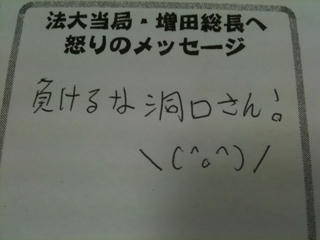 法大当局・増田総長へ
怒りのメッセージ
負けるな洞口さん!
\(^o^)/